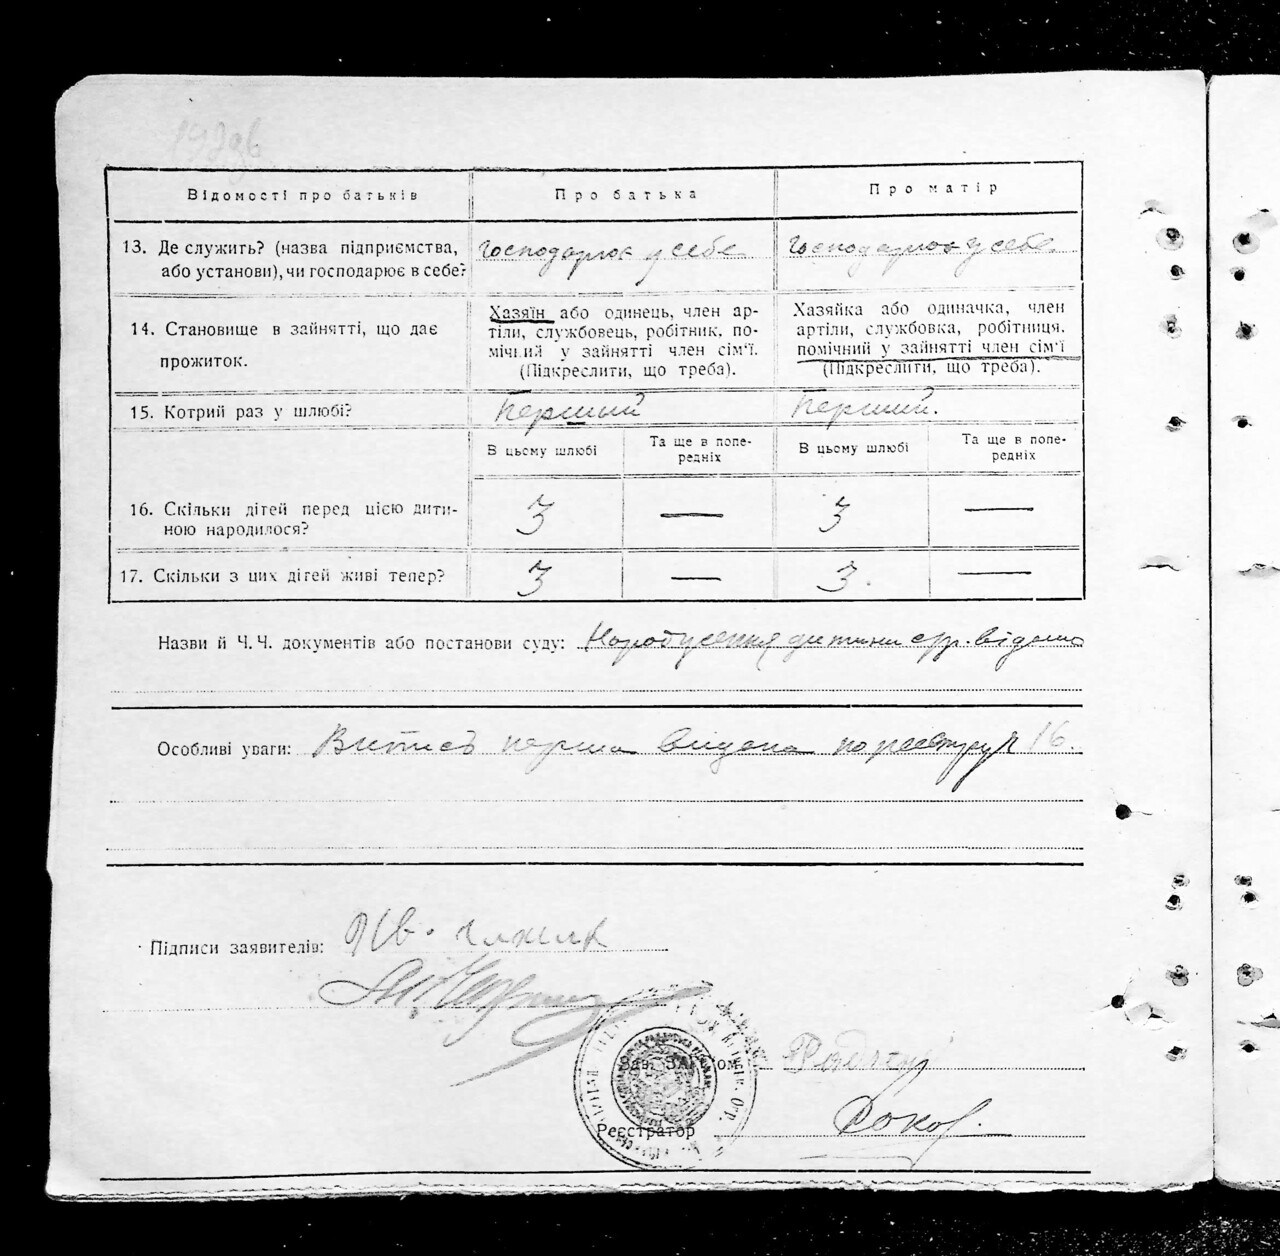 Відомості про батьків
Про батька
Про матір
13. Де служить? (назва підприємства,
або установи), чи господарює в себе?
Господарює у себе
Господарює у себе
14. Становище в зайнятті, що дає
прожиток.
Хазяїн або одинець, член ар-
тіли, службовець, робітник, по-
мічний у зайнятті член сім'ї.
(Підкреслити, що треба).
Хазяйка або одиначка, член
артіли, службовка, робітниця,
помічний у зайнятті член сім'ї
(Підкреслити, що треба).
15. Котрий раз у шлюбі?
Перший
Перший.
В цьому шлюбі
Та ще в попе-
редніх
В цьому шлюбі
Та ще в попе-
редніх
16. Скільки дітей перед цією дити-
ною народилося?
3 — 3 —
17. Скільки з цих дітей живі тепер?
3 — 3. —
Назви й Ч.Ч. документів або постанови суду: дитини
Особливі уваги: Витись перша видана по реєстру № 16.
Підписи заявителів:
Зав. ЗАГСом
Реєстратор